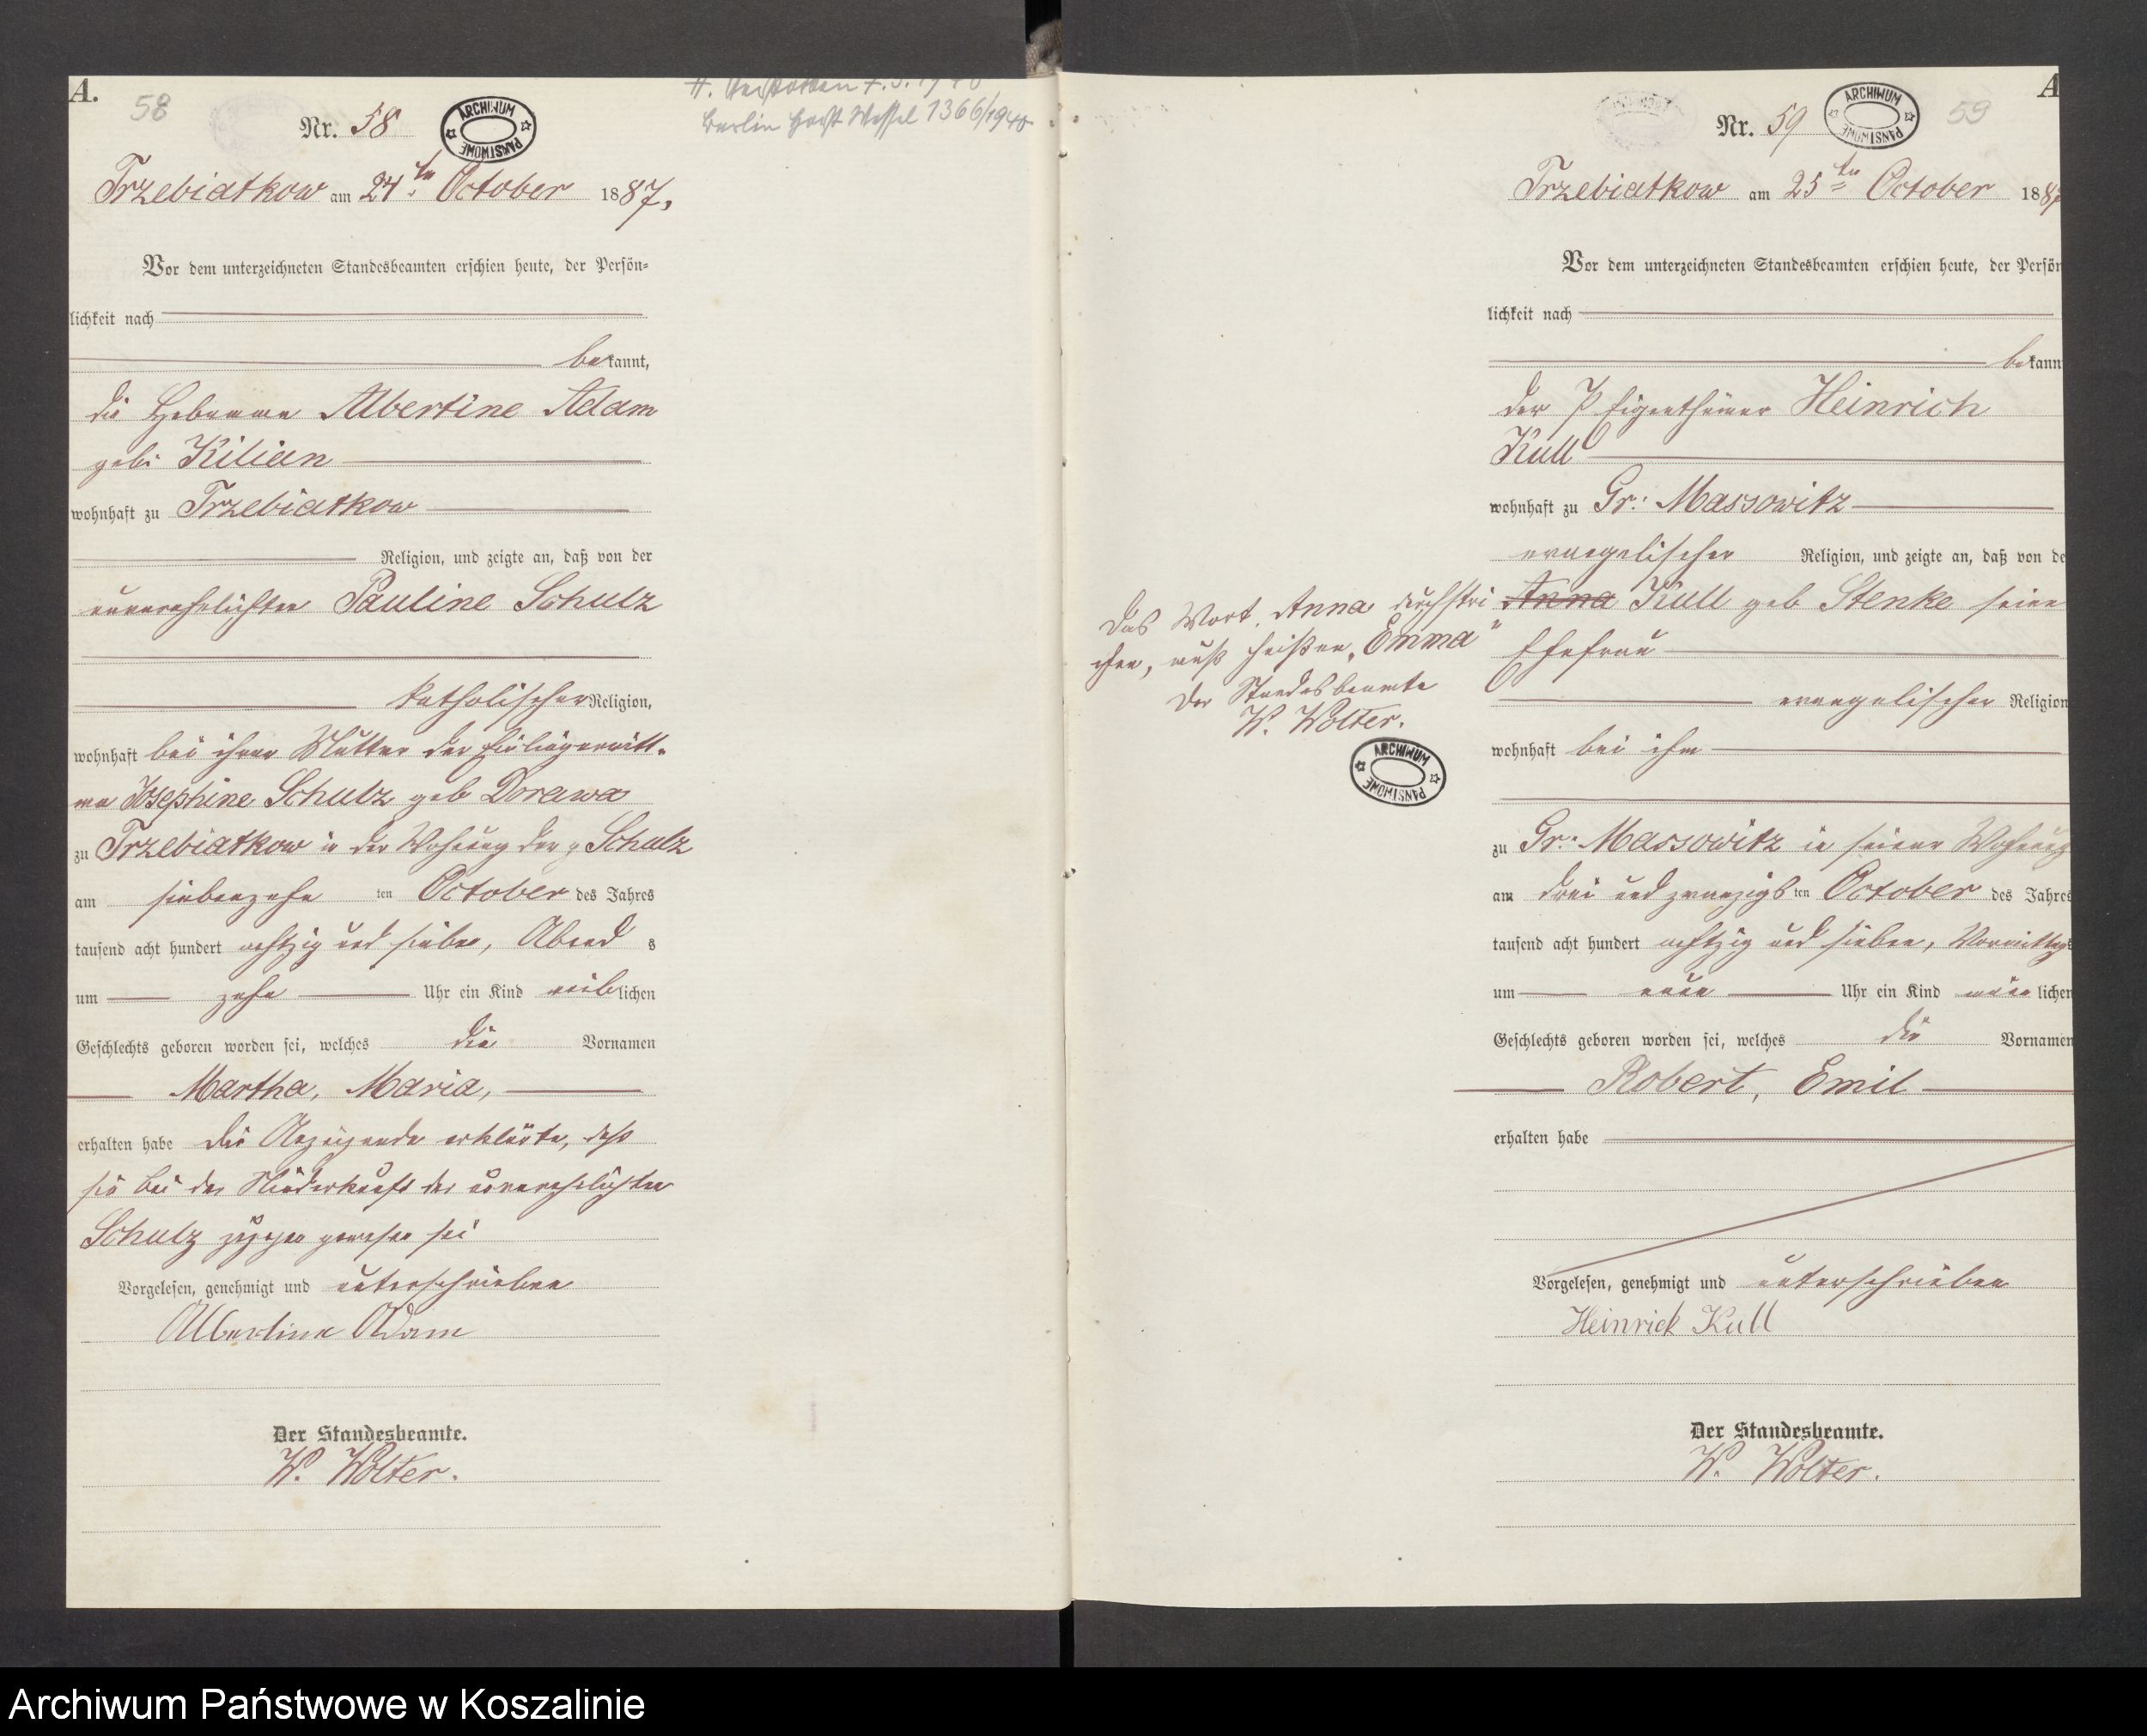 A.
58
Nr. 58
ARCHIWUM PAŃSTWOWE
H. Verstorben 7. 5. 1940
Berlin Horst Wessel 1366/1940
Trzebiatkow am 24ten October 1887,
Vor dem unterzeichneten Standesbeamten erschien heute, der Persön=
lichkeit nach
bekannt,
die Hebamme Albertine Adam
geb: Kilian
wohnhaft zu Trzebiatkow
Religion, und zeigte an, daß von der
unverehelichten Pauline Schulz
katholischer Religion,
wohnhaft bei ihrer Mutter der Einliegerwitt-
we Josephine Schulz geb Dorawa
zu Trzebiatkow in der Wohnung der Schulz
am siebenzehn ten October des Jahres
tausend acht hundert achtzig und sieben, Abend s
um zehn Uhr ein Kind weiblichen
Geschlechts geboren worden sei, welches die Vornamen
Martha, Maria,
erhalten habe Die Anzeigende erklärte, daß
sie bei der Niederkunft der unverehelichten
Schulz zugegen gewesen sei
Vorgelesen, genehmigt und unterschrieben
Albertine Adam
Der Standesbeamte.
W. Wolter.
A
59
Nr. 59
ARCHIWUM PAŃSTWOWE
Trzebiatkow am 25ten October 188
Vor dem unterzeichneten Standesbeamten erschien heute, der Persön
lichkeit nach
bekann
der Eigenthümer Heinrich
Kull
wohnhaft zu Gr: Massowitz
evangelischer Religion, und zeigte an, daß von de
Anna Kull geb Stenke seine
Ehefrau
evangelischer Religion
wohnhaft bei ihm
zu Gr: Massowitz in seiner Wohnung
am drei und zwanzigs ten October des Jahres
tausend acht hundert achtzig und sieben, Vormittags
um neun Uhr ein Kind männlichen
Geschlechts geboren worden sei, welches die Vornamen
Robert, Emil
erhalten habe
Vorgelesen, genehmigt und unterschrieben
Heinrich Kull
Der Standesbeamte.
W. Wolter.
Das Wort „Anna durchstri
chen, muß heißen „Emma"
Der Standesbeamte
W. Wolter.
ARCHIWUM PAŃSTWOWE
Archiwum Państwowe w Koszalinie